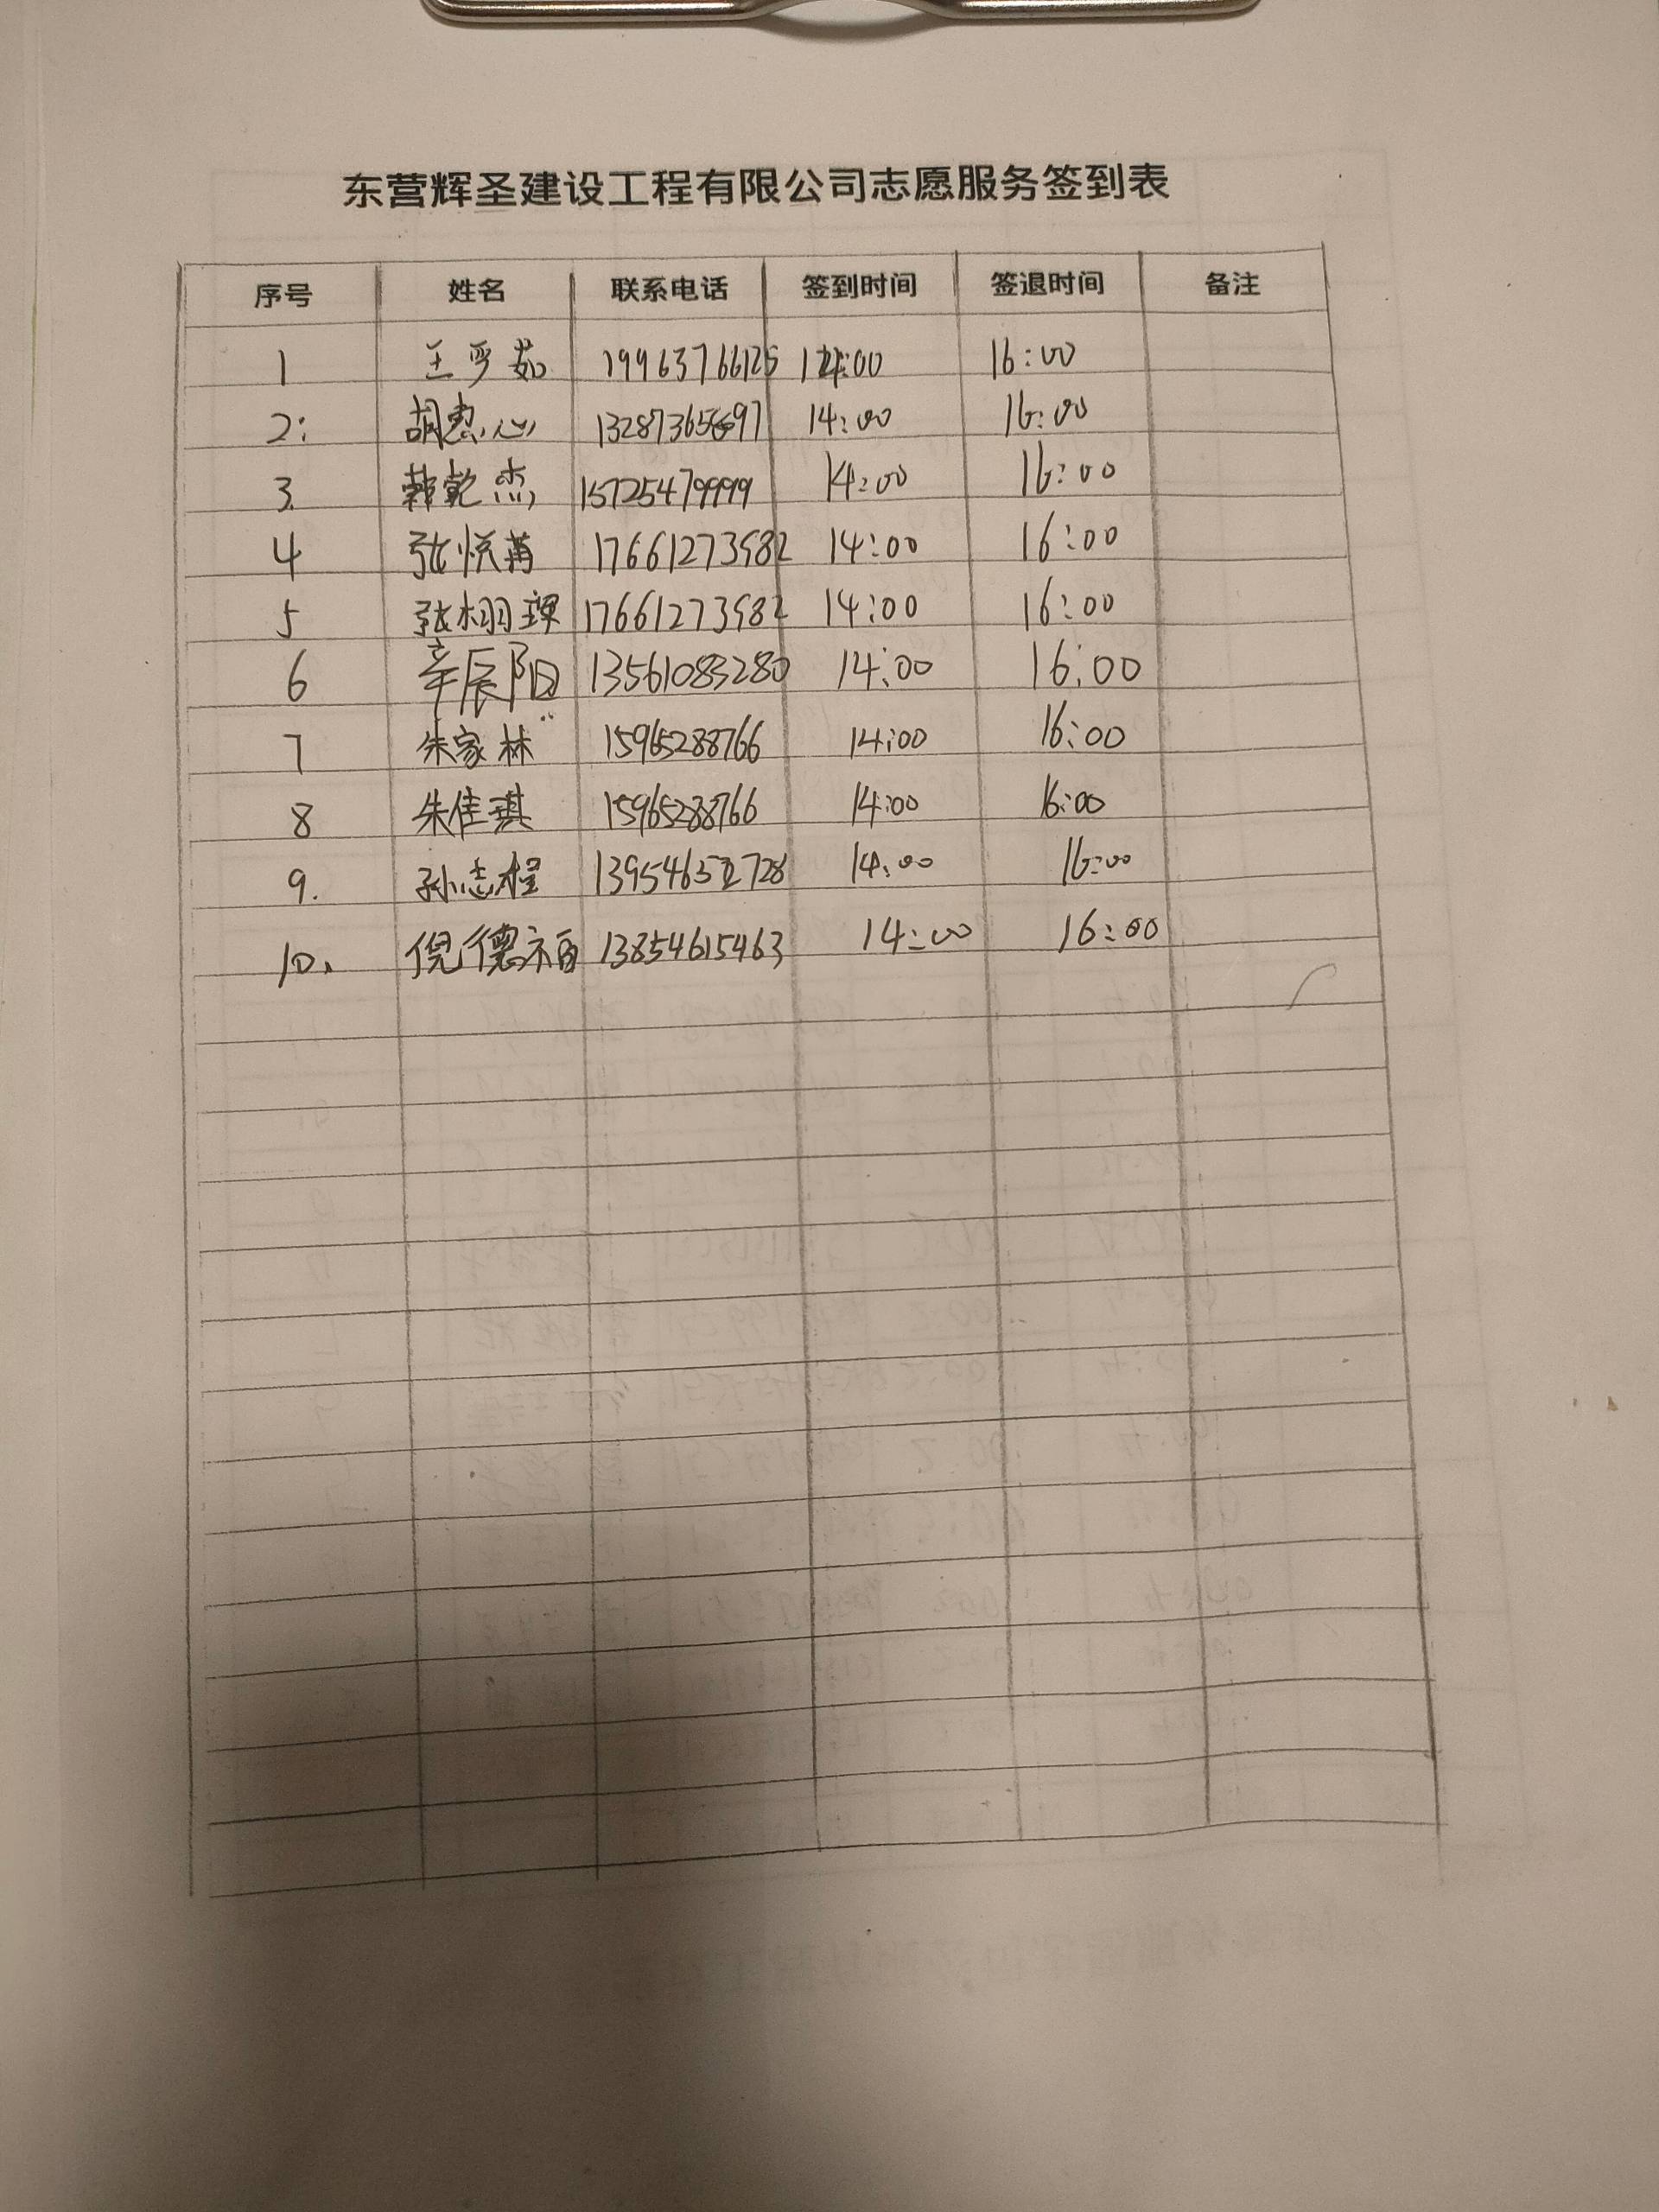 东营辉圣建设工程有限公司志愿服务签到表
序号 姓名 联系电话 签到时间 签退时间 备注
1 王梦茹 19963766125 14:00 16:00
2: 胡惠心 14:00 16:00
3. 韩乾杰 15725479999 14:00 16:00
4 张悦苒 17661273982 14:00 16:00
5 张栩瑮 17661273982 14:00 16:00
6 辛辰阳 13561083280 14:00 16:00
7 朱家林 15965288766 14:00 16:00
8 朱佳琪 15965288766 14:00 16:00
9. 孙志程 14:00 16:00
10、 倪德福 13854615463 14:00 16:00